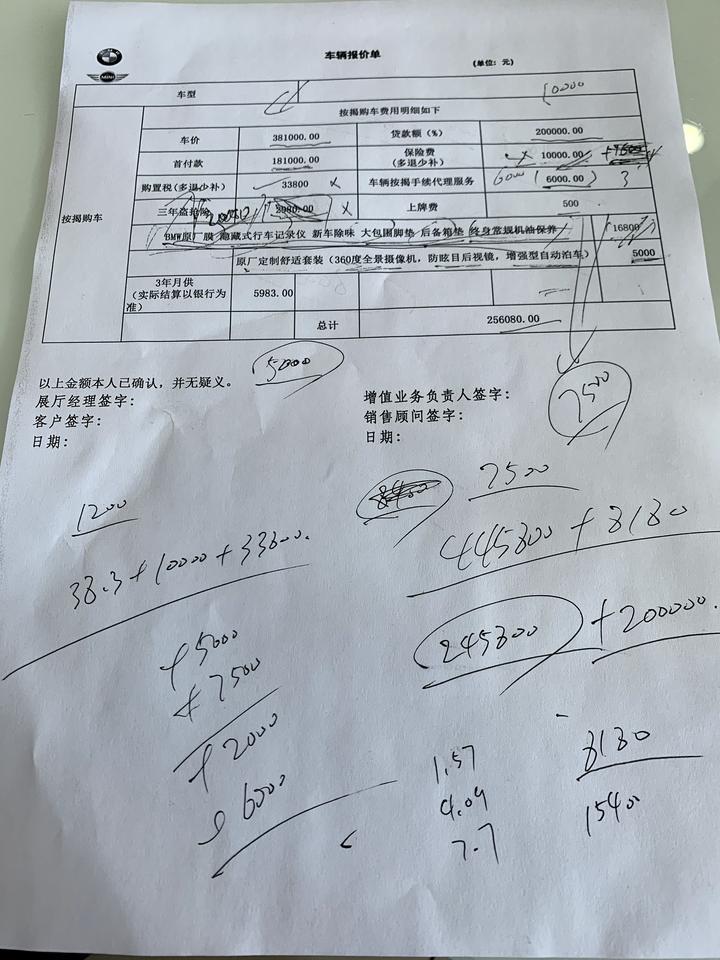 MINI
车辆报价单
(单位: 元)
车型
10000
按揭购车
按揭购车费用明细如下
车价 381000.00 贷款额(%) 200000.00
首付款 181000.00 保险费(多退少补) 10000.00
购置税(多退少补) 33800 车辆按揭手续代理服务 6000 (6000.00)
三年盗抢险 2980.00 上牌费 500
BMW原厂膜 隐藏式行车记录仪 新车除味 大包围脚垫 后备箱垫 终身常规机油保养 16800
原厂定制舒适套装(360度全景摄像机, 防眩目后视镜, 增强型自动泊车) 5000
3年月供(实际结算以银行为准) 5983.00
总计 256080.00
5000
以上金额本人已确认, 并无疑义。
展厅经理签字: 增值业务负责人签字:
客户签字: 销售顾问签字:
日期: 日期:
7500
1200
7500
38.3+10000+33800.
445800+8180
+5000
+7500
245800 +200000.
+2000
6000
1.57
4.09
7.7
8180
1540